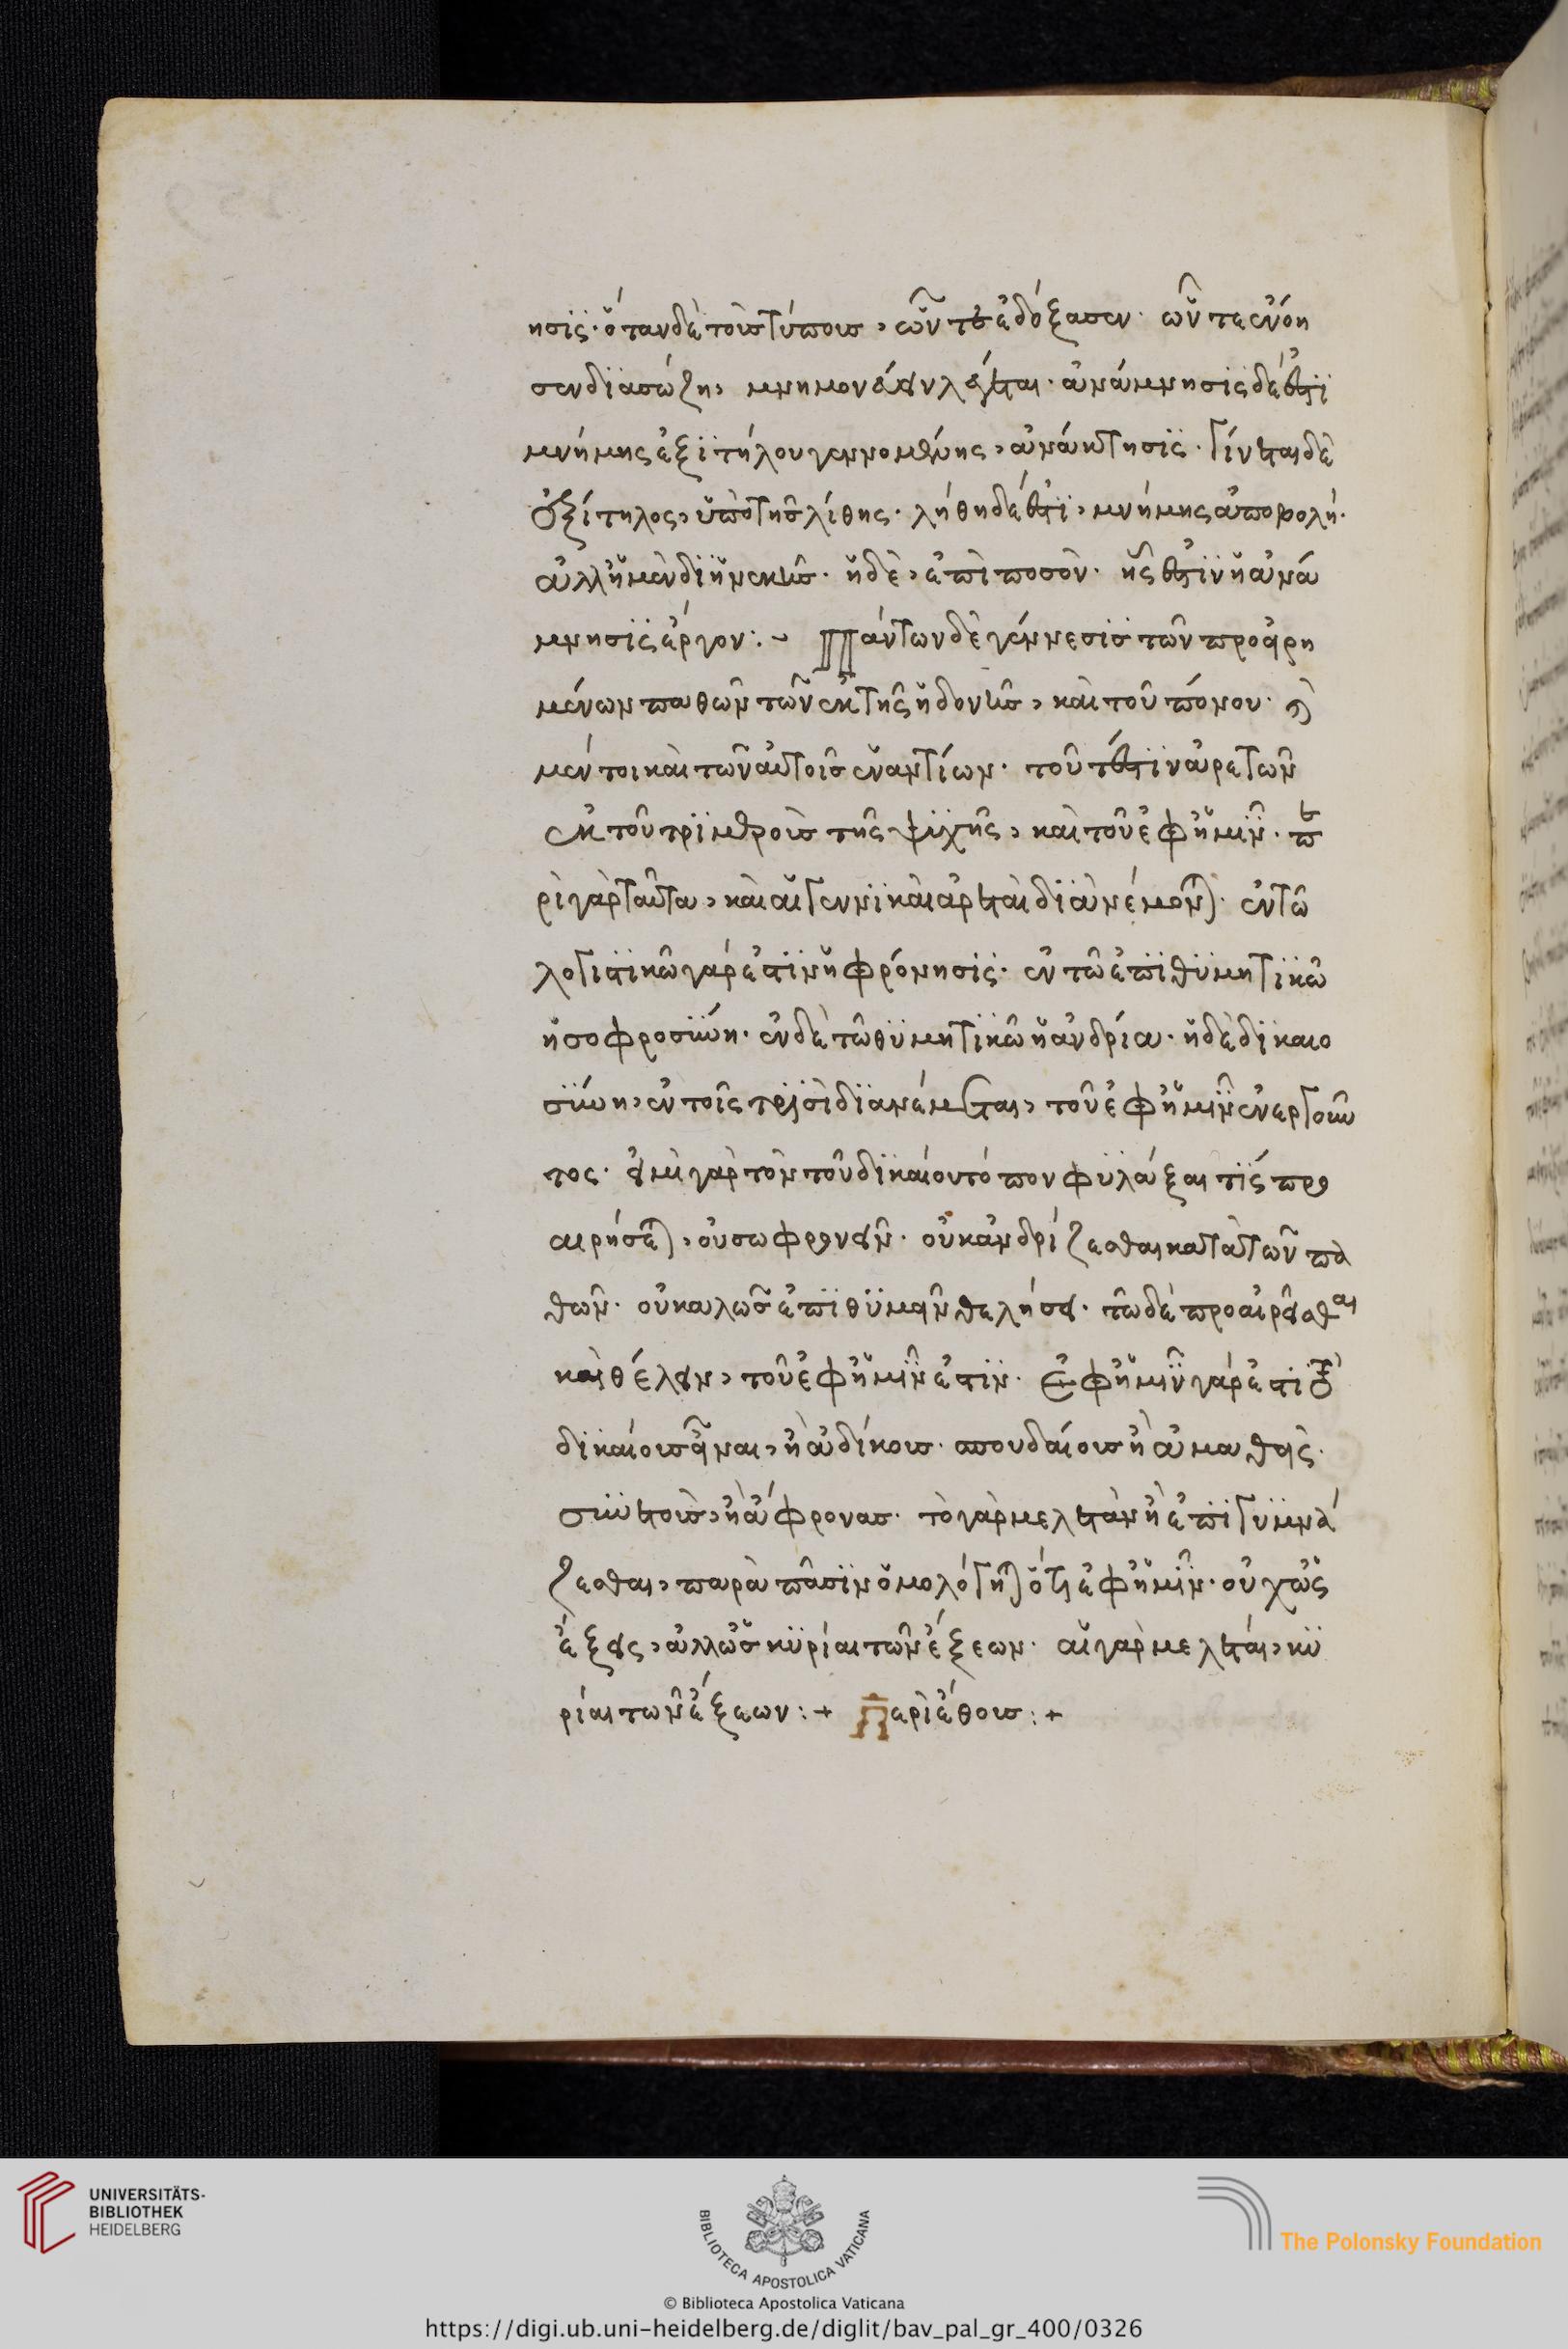 ησις· ὅταν δὲ τοῖς τύποις, ὧν τε ἐδόξασεν· ὧν τε ἐνόη
σεν διασώζη, μνημονεύειν λέγεται· ἀνάμνησις δέ ἐστι
μνήμης ἐξιτήλου γεννομένης, ἀνάκτησις· γίνεται δὲ
ἐξίτηλος, ὑπὸ τῆς λίθης· λήθη δέ ἐστι, μνήμης ἀποβολή·
ἀλλ' ἡ μὲν διηνεκὴς· ἡ δὲ, ἐπὶ ποσὸν· ἧς ἐστὶν ἡ ἀνά
μνησις ἔργον:- Πάντων δὲ γέννεσις τῶν προειρη
μένων παθῶν τῶν ἐκ τῆς ἡδονῆς, καὶ τοῦ πόνου· καὶ
μέντοι καὶ τῶν αὐτοῖς ἐναντίων· τοῦτ' ἔστιν ἀρετῶν
ἐκ τοῦ τριμεροῖς τῆς ψυχῆς, καὶ τοῦ ἐφ' ἡμῖν· πε
ρὶ γὰρ ταῦτα, καὶ αἱ γενικαὶ ἀρεταὶ διανέμονται· ἐν τῶ
λογιστικῶ γάρ ἐστιν ἡ φρόνησις· ἐν τῶ ἐπιθυμητικῶ
ἡ σοφροσύνη· ἐν δὲ τῶ θυμητικῶ ἡ ἀνδρία· ἡ δὲ δικαιο
σύνη, ἐν τοῖς τρισὶ διανέμεται, τοῦ ἐφ' ἡμῖν ἐνεργοῦν
τος· εἰ μὴ γὰρ τὸν τοῦ δικαίου τόπον φυλάξαι τίς προ
αιρήσεται, οὐ σωφρονεῖν· οὐκ ἀνδρίζεσθαι κατὰ τῶν πα
θῶν· οὐ καλῶς ἐπιθυμεῖν θελήσει· τῶ δὲ προαιρεῖσθαι
καὶ θέλειν, τοῦ ἐφ' ἡμῖν ἐστιν· ἐφ' ἡμῖν γάρ ἐστι τὸ
δικαίοις εἶναι, ἢ ἀδίκοις· σπουδαίοις ἢ ἀμαθεῖς·
συνετοῖς, ἢ ἄφρονας· τὸ γὰρ μελετὰν ἢ ἐπιγυμνά
ζεσθαι, παρὰ πᾶσιν ὁμολόγηται ὅτι ἐφ' ἡμῖν· οὐχ ὡς
ἕξεις, ἀλλ' ὡς κυρίαι τῶν ἕξεων· αἱ γὰρ μελεται, κυ
ρίαι τῶν ἕξεων:+ Περὶ ἔθοις:+
UNIVERSITÄTS-
BIBLIOTHEK
HEIDELBERG
BIBLIOTECA APOSTOLICA VATICANA
The Polonsky Foundation
© Biblioteca Apostolica Vaticana
https://digi.ub.uni-heidelberg.de/diglit/bav_pal_gr_400/0326